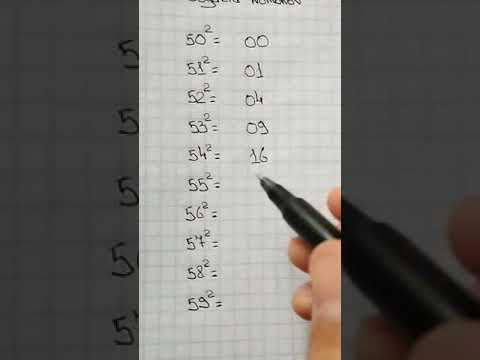 50² = 00
51² = 01
52² = 04
53² = 09
54² = 16
55² =
56² =
57² =
58² =
59² =